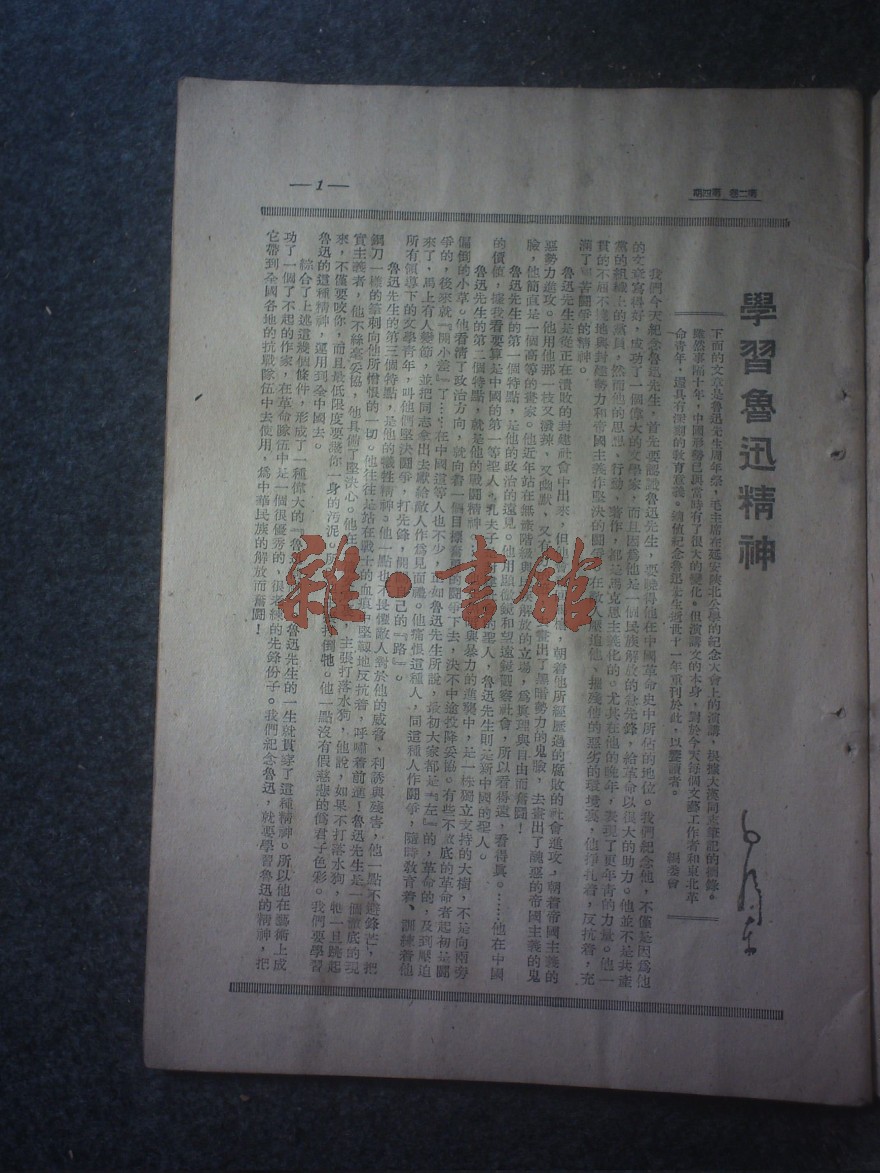 第二卷 第四期
—1—
學習魯迅精神
下面的文章是魯迅先生周年祭，毛主席在延安陝北公學的紀念大會上的演講，根據大漠同志筆記的摘錄。
雖然事隔十年，中國形勢已與當時有了很大的變化。但演講文的本身，對於今天每個文藝工作者和東北革
命青年，還具有深刻的教育意義。適值紀念魯迅先生逝世十一年重刊於此，以饗讀者。 編委會
我們今天紀念魯迅先生，首先要認識魯迅先生，要曉得他在中國革命史中所佔的地位。我們紀念他，不僅是因爲他
的文章寫得好，成功了一個偉大的文學家，而且因爲他是一個民族解放的急先鋒，給革命以很大的助力。他並不是共產
黨的組織上的黨員，然而他的思想、行動、著作，都是馬克思主義化的。尤其在他的晚年，表現了更年青的力量。他一
貫的不屈不撓地與封建勢力和帝國主義作堅決的鬪爭，在敵人壓迫他、摧殘他的惡劣的環境裏，他掙扎着，反抗着，充
滿了艱苦鬪爭的精神。
魯迅先生是從正在潰敗的封建社會中出來，但他會殺回馬槍，朝着他所經歷過的腐敗的社會進攻，朝着帝國主義的
惡勢力進攻。他用他那一枝又潑辣，又幽默，又有力的筆，畫出了黑暗勢力的鬼臉，去畫出了醜惡的帝國主義的鬼
臉，他簡直是一個高等的畫家。他近年站在無產階級與民族解放的立場，爲眞理與自由而奮鬪！
魯迅先生的第一個特點，是他的政治的遠見。他用顯微鏡和望遠鏡觀察社會，所以看得遠，看得眞。……他在中國
的價値，據我看要算是中國的第一等聖人。孔夫子是封建社會的聖人，魯迅先生則是新中國的聖人。
魯迅先生的第二個特點，就是他的戰鬪精神。他在黑暗與暴力的進襲中，是一株獨立支持的大樹，不是向兩旁
偏倒的小草。他看清了政治方向，就向着一個目標奮勇的鬪爭下去，決不中途投降妥協。有些不徹底的革命者起初是鬪
爭的，後來就『開小差』了……在中國這等人也不少，正如魯迅先生所說，最初大家都是『左』的，革命的，及到壓迫
來了，馬上有人變節，並把同志拿出去獻給敵人作爲見面禮。他痛恨這種人，同這種人作鬪爭，隨時敎育着、訓練着他
所有領導下的文學青年，叫他們堅決鬪爭，打先鋒，開闢自己的『路』。
魯迅先生的第三個特點，是他的犧牲精神。他一點也不畏懼敵人對於他的威脅、利誘與殘害，他一點不避鋒芒，把
鋼刀一樣的筆刺向他所憎恨的一切。他往往是站在戰士的血痕中堅韌地反抗着，呼嘯着前進！魯迅先生是一個徹底的現
實主義者，他不絲毫妥協，他具備了堅決心。他在一篇文章裏，主張打落水狗，他說，如果不打落水狗，牠一旦跳起
來，不僅要咬你，而且最低限度要濺你一身的汚泥。所以他主張打倒牠。他一點沒有假慈悲的僞君子色彩。我們要學習
魯迅的這種精神，運用到全中國去。
綜合了上述這幾個條件，形成了一種偉大的『魯迅精神』。魯迅先生的一生就貫穿了這種精神。所以他在藝術上成
功了一個了不起的作家，在革命隊伍中是一個很優秀的，很老練的先鋒份子。我們紀念魯迅，就要學習魯迅的精神，把
它帶到全國各地的抗戰隊伍中去使用，爲中華民族的解放而奮鬪！
雜·書館